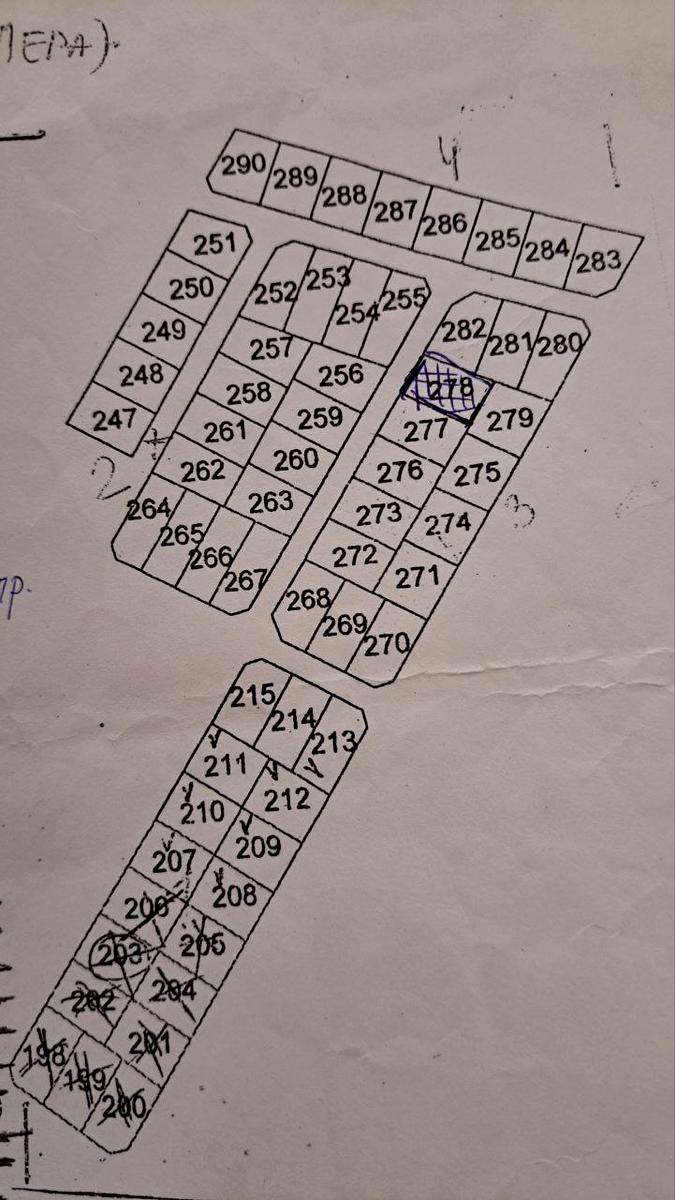 МЕРА).
4
290 289 288 287 286 285 284 283
251
250
249
248
247
2
252 253 254 255
257 256
258 259
261 260
262 263
264 265 266 267
282 281 280
278 279
277
276 275
273 274
272 271
268 269 270
3
пр.
215 214 213
211 212
210 209
207 208
206 205
203 204
202 201
198 199 200